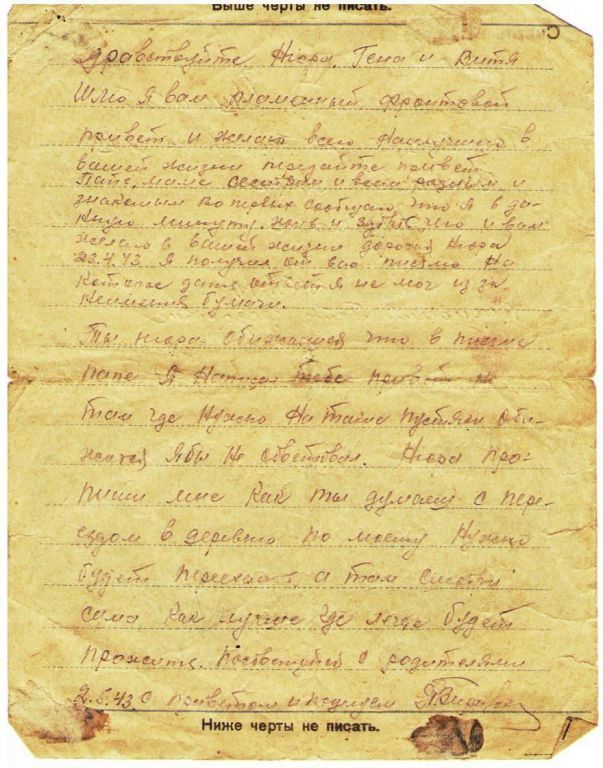 Выше черты не писать.
Здравствуйте Нюра, Гена и Витя
Шлю я вам пламенный фронтовой
привет и желаю всего наилучшего в
вашей жизни передайте привет
Папе, маме сестрам и всем родным и
знакомым во первых сообщаю что я в да-
нную минуту жив и здоров чего и вам
желаю в вашей жизни дорогая Нюра
23.4.43 я получил от вас письмо на
которое дать ответ я не мог из за
неимения бумаги.
Ты Нюра обижаешся что в письме
папе я написал тебе привет не
там где нужно на такие пустяки оби-
жатся я бы не советовал. Нюра про-
пиши мне как ты думаеш с пере-
ездом в деревню по моему нужно
будет переехать, а там смотри
сама как лучше где легче будет
прожить. посоветуйся с родителями
2.5.43 с приветом и
Ниже черты не писать.